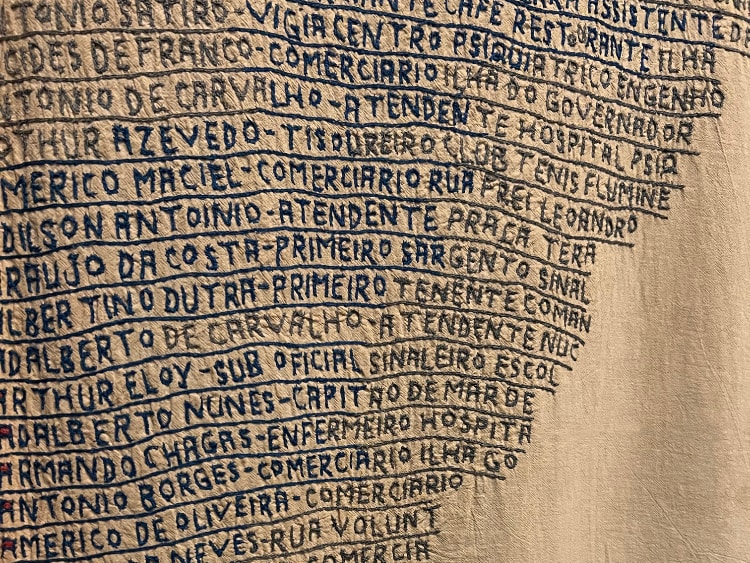 ANTE CAFE RESTOURANTE ILHA
NTONIO SATIRO-VIGIA CENTRO PSIQUIATRICO ENGENHO
CIDES DE FRANCO-COMERCIARIO ILHA DO GOVERNADOR
NTONIO DE CARVALHO-ATENDENTE HOSPITAL PSIQ
RTHUR AZEVEDO-TISOUREIRO CLOB TENIS FLUMINE
MERICO MACIEL-COMERCIARIO RUA FREI LEOANDRO
DILSON ANTOINIO-ATENDENTE PRAÇA TERA
ARAUJO DA COSTA-PRIMEIRO SARGENTO SINAL
ALBERTINO DUTRA-PRIMEIRO TENENTE COMAN
ADALBERTO DE CARVALHO-ATENDENTE NUC
ARTHUR ELOY-SUB OFICIAL SINALEIRO ESCOL
ADALBERTO NUNES-CAPITAO DE MAR DE
ARMANDO CHAGAS-ENFERMEIRO HOSPITA
ANTONIO BORGES-COMERCIARIO ILHA GO
AMERICO DE OLIVEIRA-COMERCIARIO
NEVES-RUA VOLUNT
COMERCIA